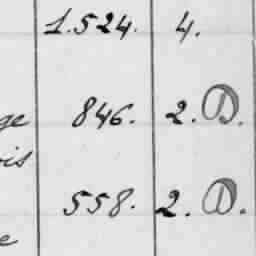 1.524. 4.
ge 846. 2. D.
is
558. 2. D.
e